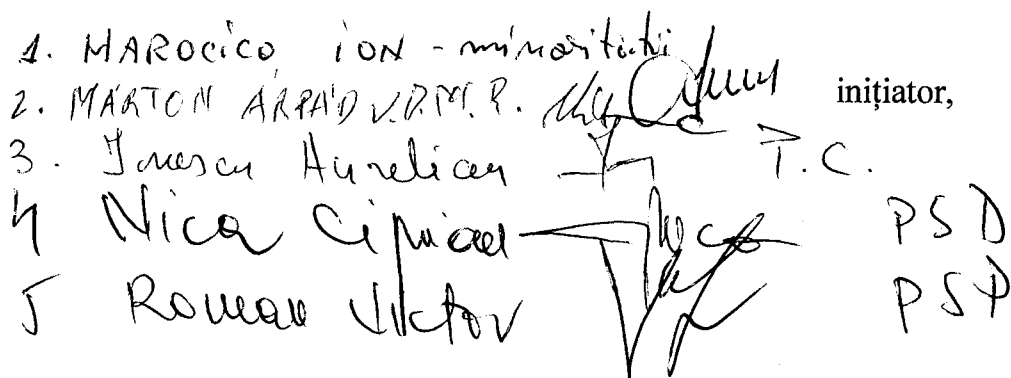 1. MAROCICO ION - minorități
2. MÁRTON ÁRPÁD U.D.M.R. inițiator,
3. Ionescu Aurelian P.C.
4 Nica Ciprian PSD
5 Roman Victor PSD